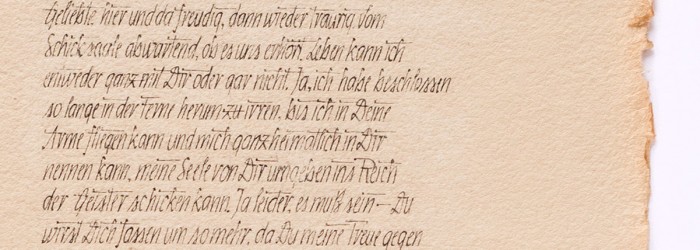 Geliebte hier und da freudig, dann wieder traurig vom
Schicksaale abwartend, ob es uns erhört. Leben kann ich
entweder ganz mit Dir oder gar nicht. Ja, ich habe beschlossen
so lange in der Ferne herum zu irren, bis ich in Deine
Arme fliegen kann und mich ganz heimatlich in Dir
nennen kann, meine Seele von Dir umgeben ins Reich
der Geister schicken kann. Ja leider, es muß sein – Du
wirst Dich fassen um so mehr, da Du meine Treue gegen